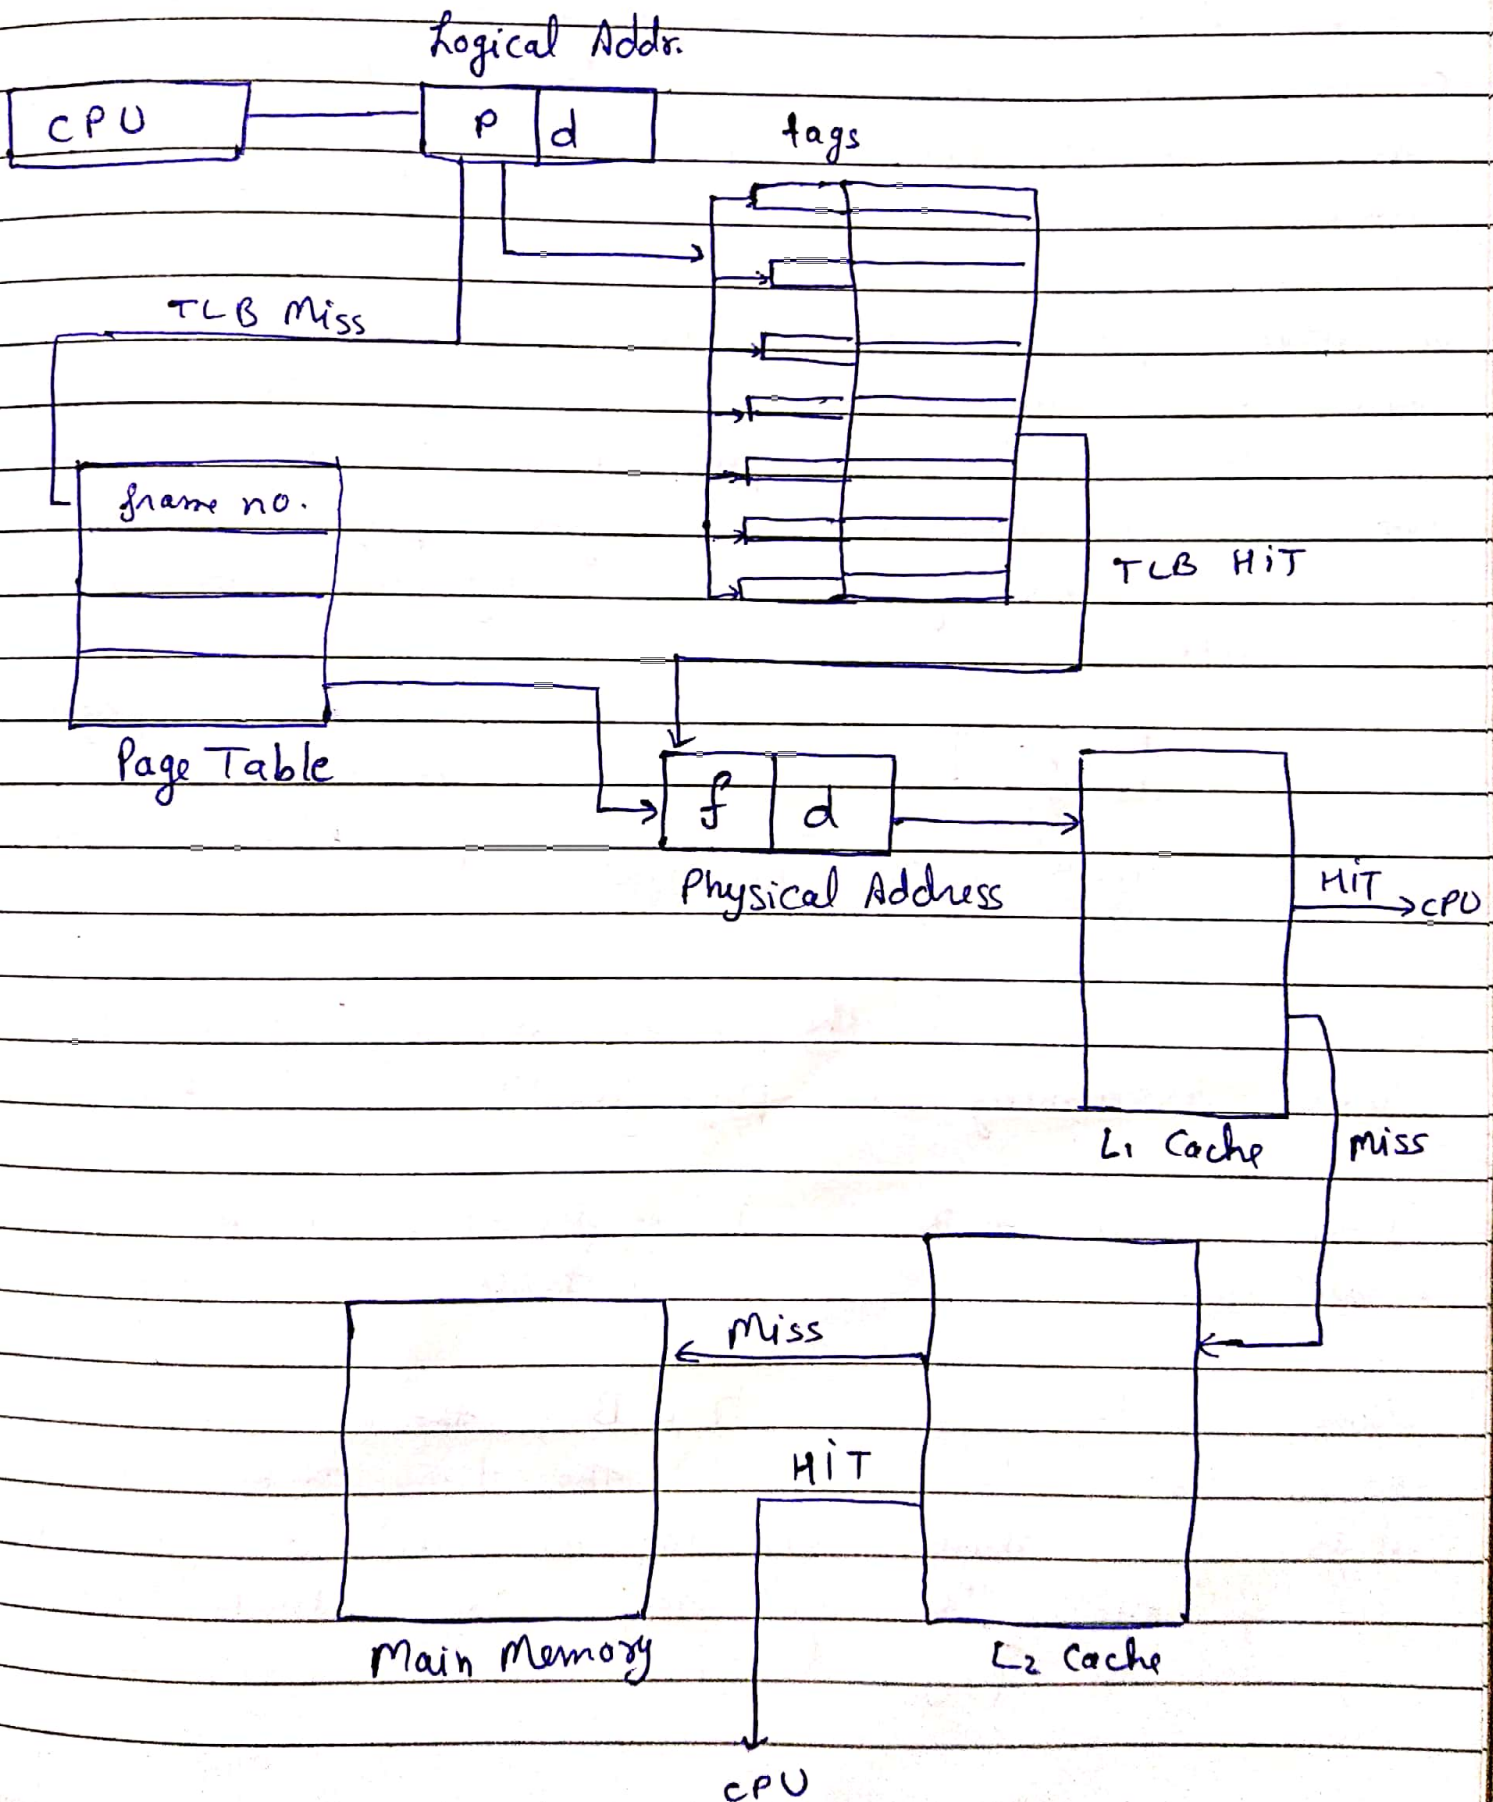 Logical Addr.
CPU
P d
tags
TLB Miss
frame no.
TLB HiT
Page Table
f d
Physical Address
HiT
CPU
L1 Cache
Miss
Miss
HiT
Main Memory
L2 Cache
CPU